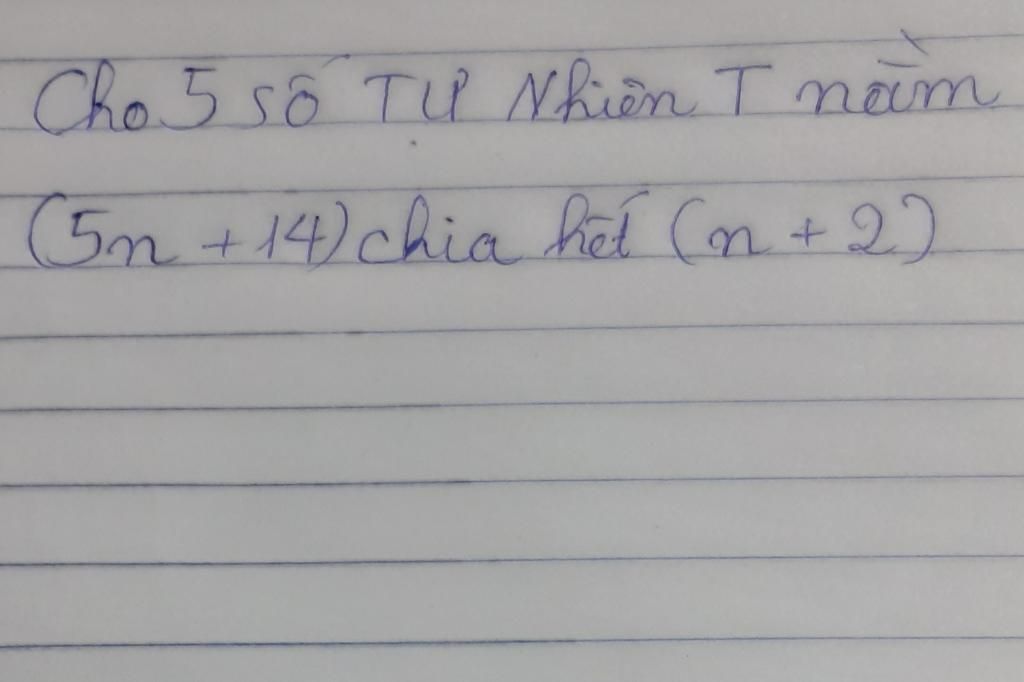 Cho 5 số Tự Nhiên T nằm
(5n + 14) chia hết (n + 2)